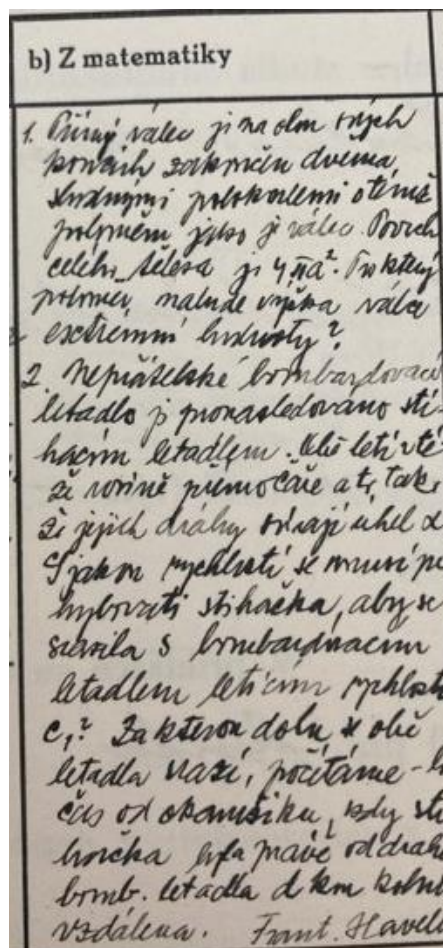 b) Z matematiky
1. Přímý válec je na obou svých
koncích zakončen dvěma
shodnými polokoulemi o témž
poloměru jako je válec. Povrch
celého tělesa je 4πa². Pro který
poloměr nabude výška válce
extrémní hodnoty?
2. Nepřátelské bombardovací
letadlo je pronásledováno stí
hacím letadlem. Obě letí v té
že rovině přímočaře a to tak,
že jejich dráhy svírají úhel α
S jakou rychlostí se musí po
hybovati stíhačka, aby se
srazila s bombardovacím
letadlem letícím rychlostí
c₁? Za kterou dobu se obě
letadla srazí, počítáme-li
čas od okamžiku, kdy stí
hačka byla právě od dráhy
bomb. letadla d km kolmo
vzdálena. Frant. Havel